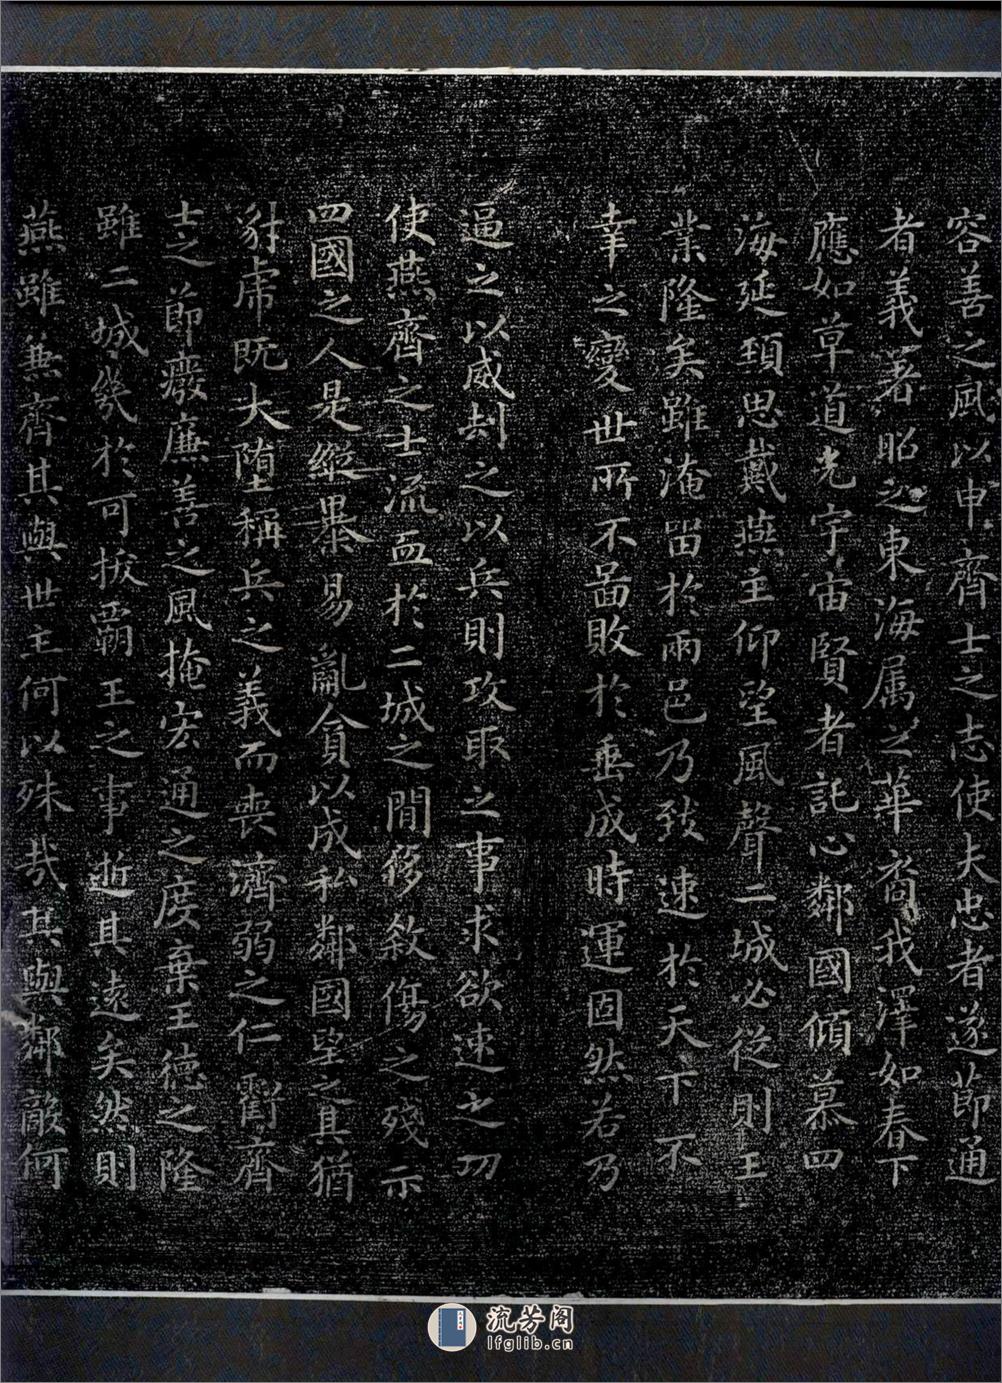 容善之風以申齊士之志使夫忠者遂節通
者義著昭之東海属之華裔我澤如春下
應如草道光宇宙賢者託心鄰國傾慕四
海延頚思戴燕主仰望風聲二城必從則王
業隆矣雖淹留於兩邑乃致速於天下不
幸之變世所不啚敗於垂成時運固然若乃
逼之以威刦之以兵則攻取之事求欲速之功
使燕齊之士流血於二城之間侈敘傷之殘示
四國之人是縱暴易亂貪以成私鄰國望之其猶
豺虎既大堕稱兵之義而喪濟弱之仁虧齊
士之節癈廉善之風掩宏通之度棄王德之隆
雖二城幾於可拔霸王之事逝其遠矣然則
燕雖兼齊其與世主何以殊哉其與鄰敵何
流芳阁
lfglib.cn